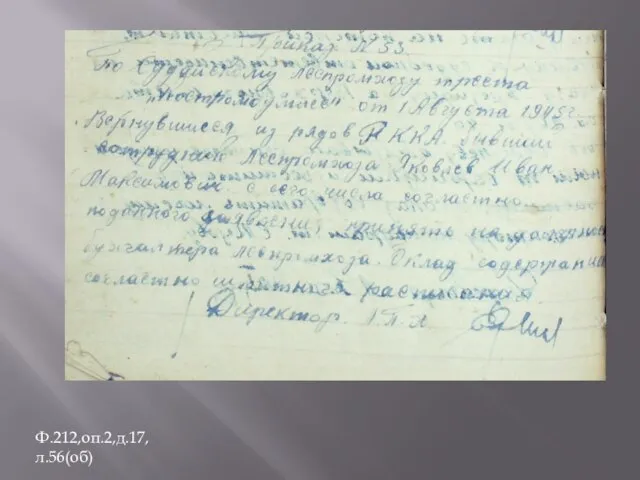 Приказ N 53.
По Судайскому леспромхозу треста
"Костромдумлес" от 1 Августа 1945 г.
Вернувшийся из рядов РККА бывший
сотрудник Леспромхоза Яковлев Иван
Максимович с сего числа согластно
поданного заявления принять на должность
бухгалтера леспромхоза. Оклад содержания
согластно штатного расписания.
Директор. Л.П.Х
Ф.212,оп.2,д.17,
л.56(об)